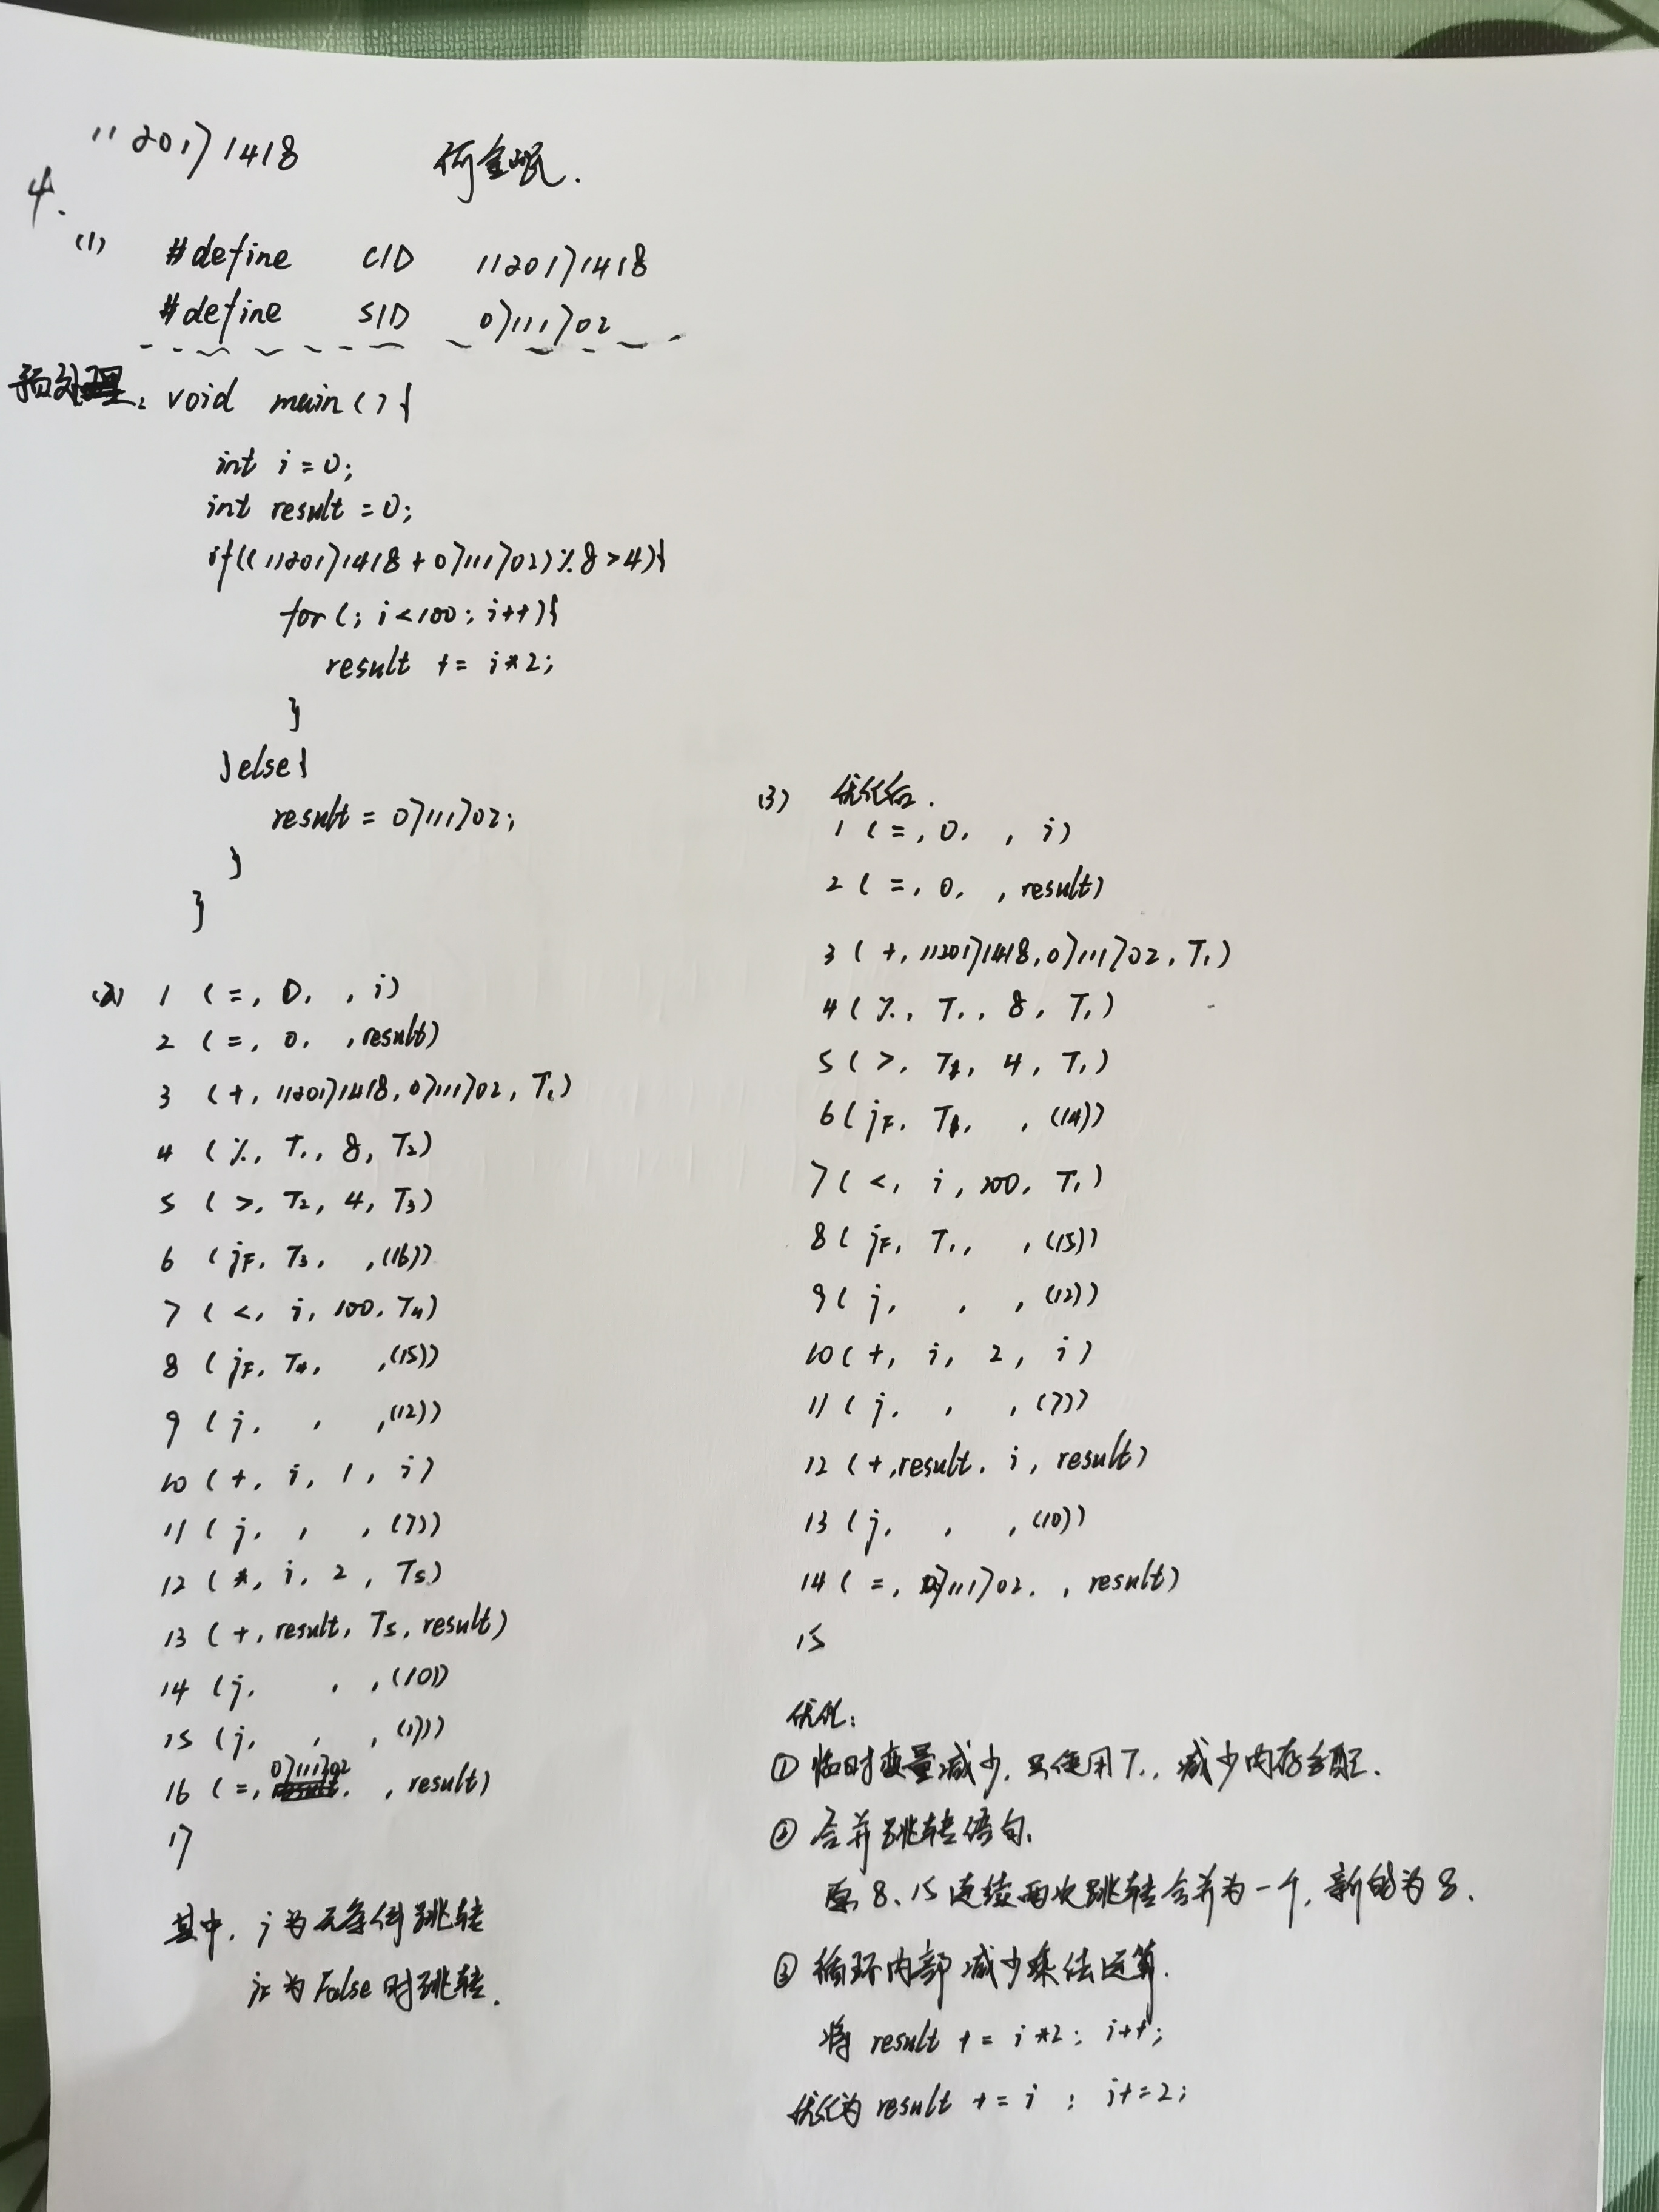 1120171418 何金岷.
4.
(1) #define CID 1120171418
#define SID 07111702
预处理: void main(){
int i=0;
int result=0;
if((1120171418+07111702)%8>4){
for(; i<100; i++){
result += i*2;
}
}else{
result = 07111702;
}
}
(2) 1 (=, 0, , i)
2 (=, 0, , result)
3 (+, 1120171418, 07111702, T1)
4 (%, T1, 8, T2)
5 (>, T2, 4, T3)
6 (jF, T3, , (16))
7 (<, i, 100, T4)
8 (jF, T4, , (15))
9 (j, , , (12))
10 (+, i, 1, i)
11 (j, , , (7))
12 (*, i, 2, T5)
13 (+, result, T5, result)
14 (j, , , (10))
15 (j, , , (17))
16 (=, 07111702, , result)
17
其中, j为无条件跳转
jF为False时跳转.
(3) 优化后.
1 (=, 0, , i)
2 (=, 0, , result)
3 (+, 1120171418, 07111702, T1)
4 (%, T1, 8, T1)
5 (>, T1, 4, T1)
6 (jF, T1, , (14))
7 (<, i, 200, T1)
8 (jF, T1, , (15))
9 (j, , , (12))
10 (+, i, 2, i)
11 (j, , , (7))
12 (+, result, i, result)
13 (j, , , (10))
14 (=, 07111702, , result)
15
优化:
① 临时变量减少, 只使用T1, 减少内存分配.
② 合并跳转语句,
原8、15连续两次跳转合并为一个, 新的为8.
③ 循环内部减少乘法运算.
将 result += i*2; i++;
优化为 result += i ; i+=2;